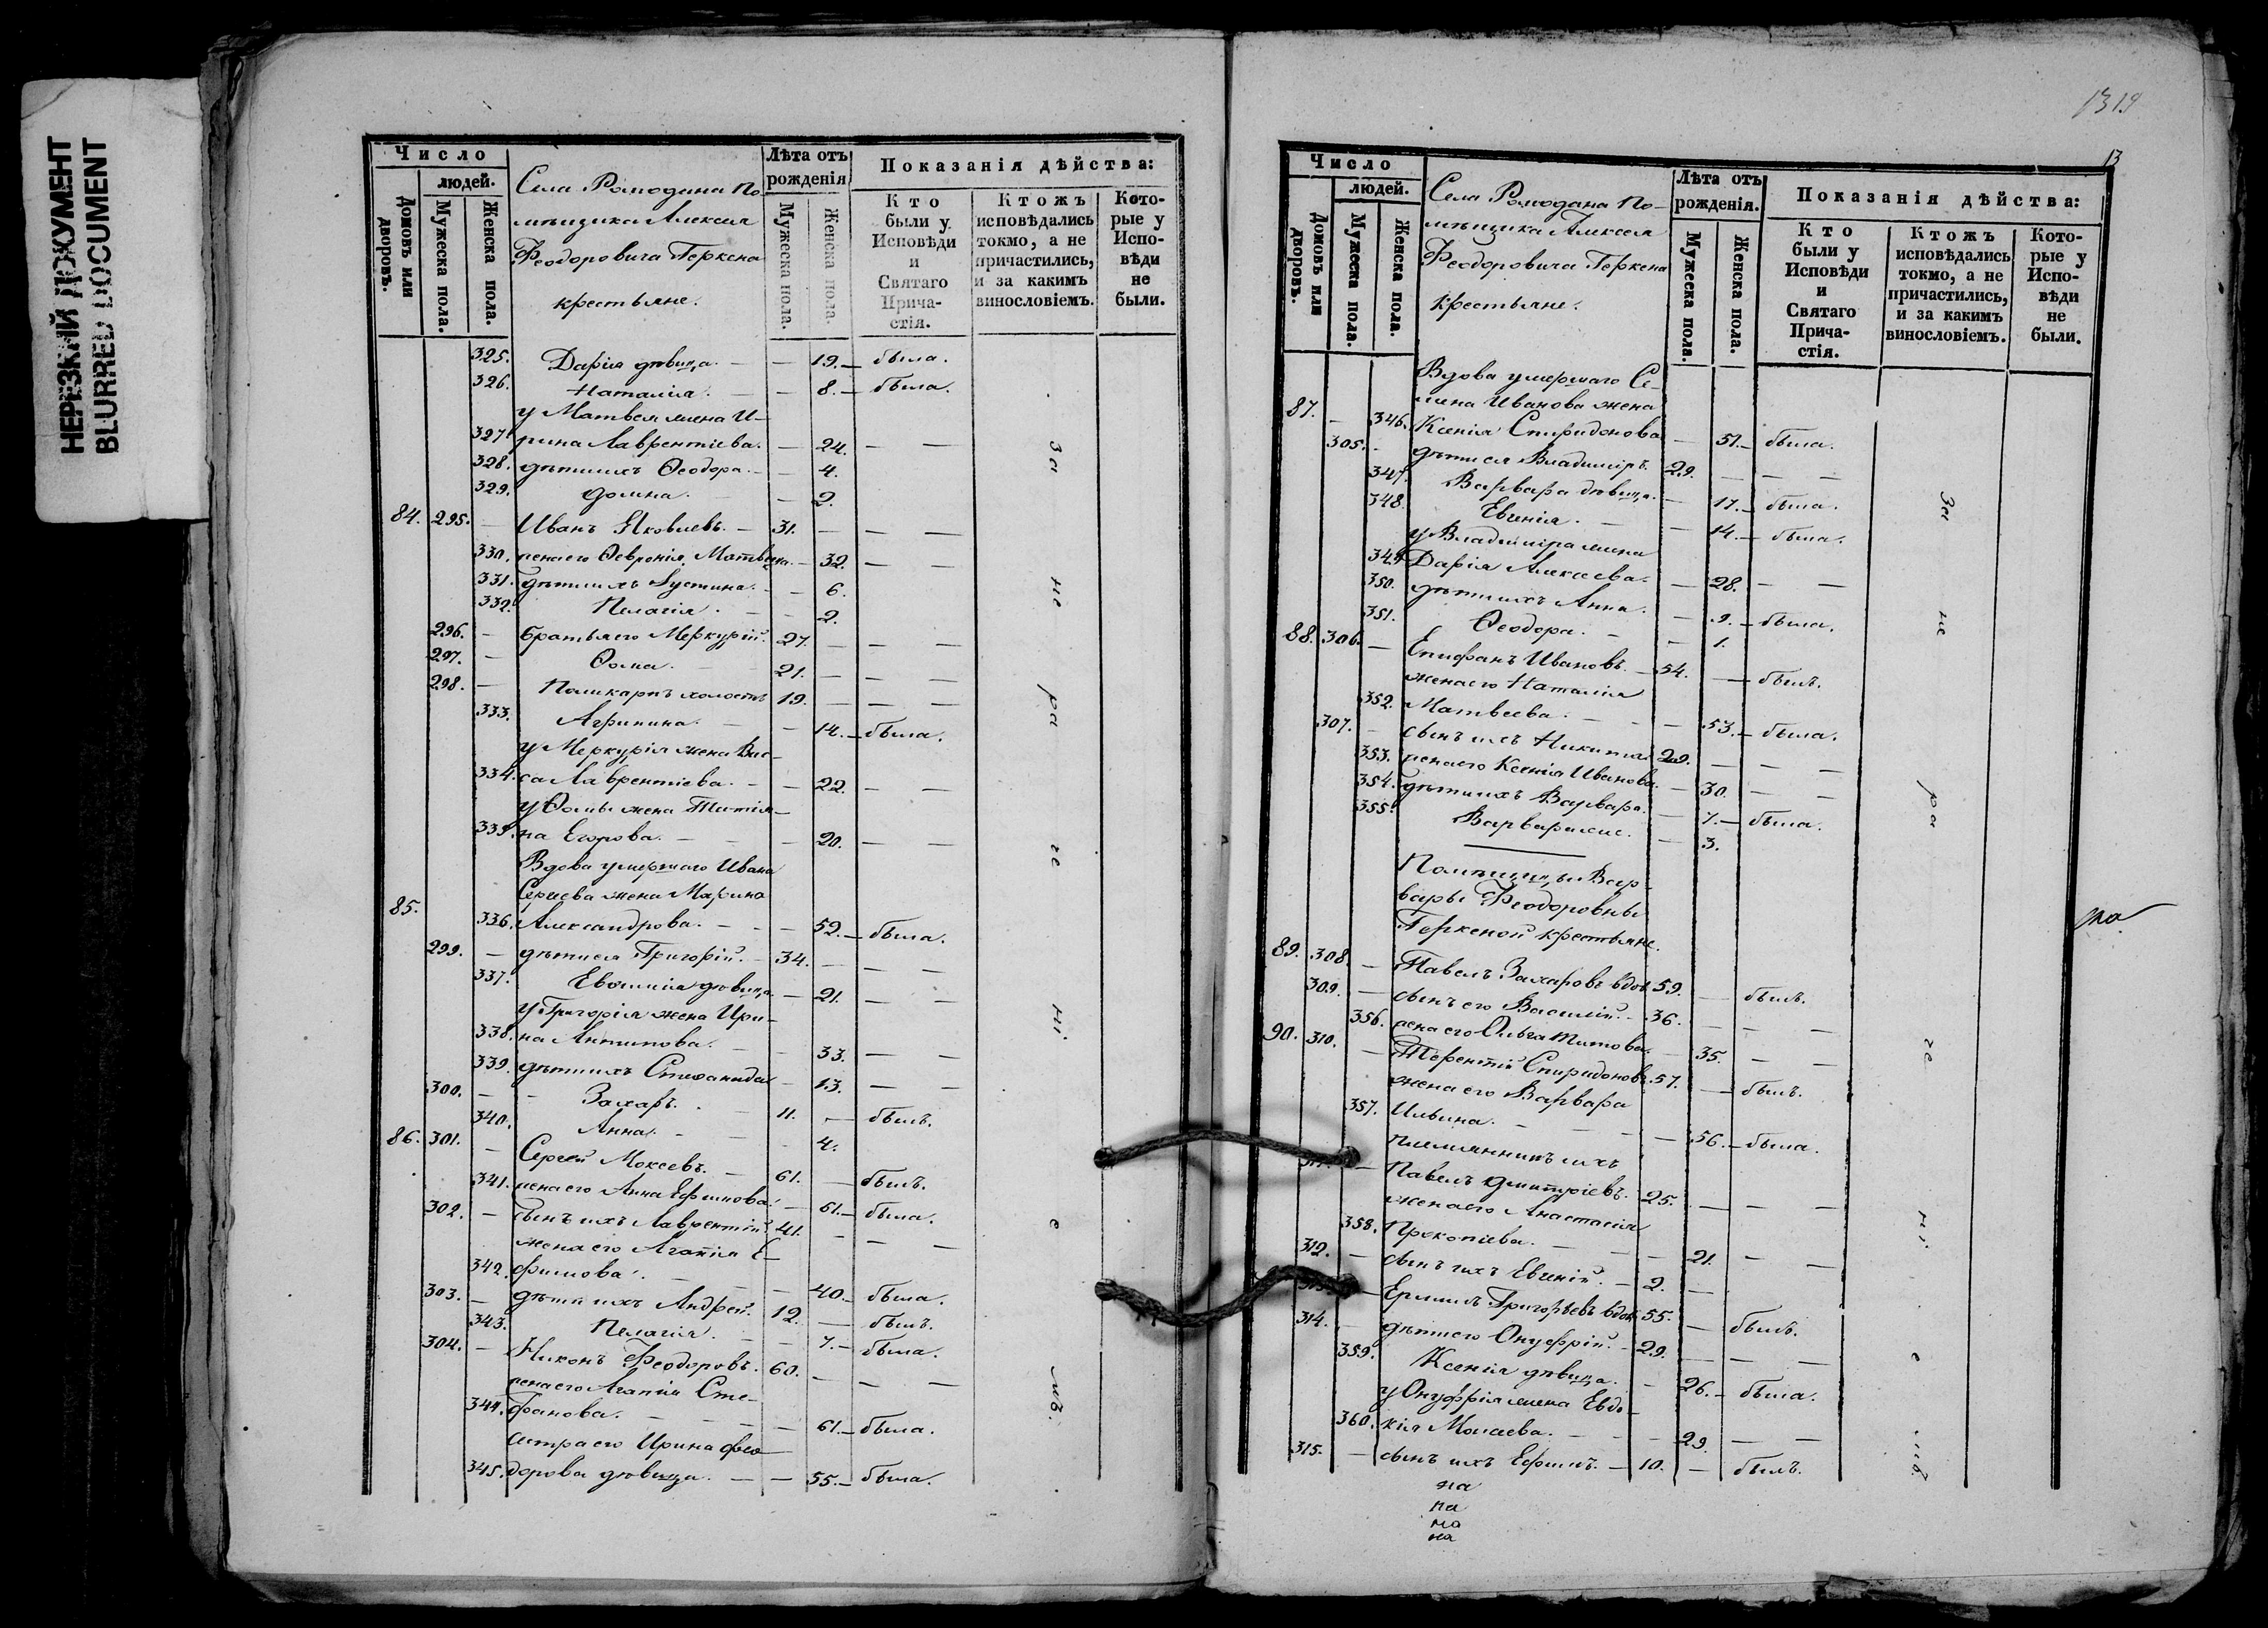 НЕРЕЗКИЙ ДОКУМЕНТ
BLURRED DOCUMENT
Число
людей.
Домовъ или дворовъ.
Мужеска пола.
Женска пола.
Села Ромодана По-
мѣщика Алексея
Феодоровича Геркена
крестьяне.
Лѣта отъ рожденія
Мужеска пола.
Женска пола.
Показанія дѣйства:
Кто были у Исповѣди и Святаго Прича-стія.
Ктожъ исповѣдались токмо, а не причастились, и за какимъ винословіемъ.
Кото-рые у Испо-вѣди не были.
325. Дарія дѣвица. — — 19. — была.
326. Наталія. — — 8. — была.
у Матвея жена И-
327. рина Лаврентіева. — 24. — —
328. дѣти ихъ Ѳеодора. — — 4.
329. Домна. — — 2.
84. 295. — Иванъ Яковлевъ. — 31. — — —
330. жена его Ѳевронія Матвѣева. — 32. — —
331. дѣти ихъ Іустина. — — 6.
332. Пелагія. — — 2.
296. — братья его Меркурій. 27. — — —
297. — Ѳома. — 21. — — —
298. — Поликарпъ холостъ 19. — — —
333. Агрипина. — — 14. — была.
у Меркурія жена Вас-
334. са Лаврентіева. — — 22. — —
у Ѳомы жена Татія-
335. на Егорова. — — 20. — —
Вдова умершаго Ивана
Сергеева жена Марина
85. 336. Александрова. — — 52. — была.
299. — дѣти ея Григорій. — 34. — — —
337. Евѳимія дѣвица — 21. — —
у Григорія жена Ири-
338. на Антипова. — — 33. — —
339. дѣти ихъ Стефанида — 13. — —
300. — Захаръ. — 11. — былъ.
340. Анна. — — 4.
86. 301. — Сергей Мокеевъ. — 61. — былъ.
341. жена его Анна Ефимова. — 61. — была.
302. — сынъ ихъ Лаврентій. 41. — — —
жена его Агапія Е-
342. фимова. — — 40. — была.
303. — дѣти ихъ Андрей. 12. — былъ.
343. Пелагія. — — 7. — была.
304. — Никонъ Феодоровъ. 60. — — —
жена его Агапія Сте-
344. фанова. — — 61. — была.
сестра его Ирина Фео-
345. дорова дѣвица. — — 55. — была.
за не ра че ні е мъ.
1319
13
Число
людей.
Домовъ или дворовъ.
Мужеска пола.
Женска пола.
Села Ромодана По-
мѣщика Алексея
Феодоровича Геркена
крестьяне.
Лѣта отъ рожденія.
Мужеска пола.
Женска пола.
Показанія дѣйства:
Кто были у Исповѣди и Святаго Прича-стія.
Ктожъ исповѣдались токмо, а не причастились, и за какимъ винословіемъ.
Кото-рые у Испо-вѣди не были.
Вдова умершаго Се-
мена Иванова жена
87. — 346. Ксенія Спиридонова — 51. — была.
305. — дѣти ея Владиміръ. 29. — — —
347. Варвара дѣвица. — 17. — была.
348. Евгенія. — — 14. — была.
у Владиміра жена
349. Дарія Алексеева. — 28. — —
350. дѣти ихъ Анна. — 9. — была.
351. Ѳеодора. — — 1.
88. 306. — Епифанъ Ивановъ. — 54. — былъ.
жена его Наталія
352. Матвеева. — — 53. — была.
307. — сынъ ихъ Никита 29. — — —
353. жена его Ксенія Иванова. — 30. — —
354. дѣти ихъ Варвара. — 7. — была.
355. Варвара же. — 3.
Помѣщицы Вар-
вары Феодоровны
Геркеной крестьяне.
89. 308. — Павелъ Захаровъ вдов. 59. — былъ.
309. — сынъ его Василій. — 36. — — —
356. жена его Ольга Титова. — 35. — —
90. 310. — Терентій Спиридоновъ. 57. — былъ.
жена его Варвара
357. Ильина. — — — 56. — была.
племянникъ ихъ
— Павелъ Дмитріевъ. 25. — — —
жена его Анастасія
358. Прокопіева. — — 21. — —
312. — сынъ ихъ Евгеній. — 2. —
— Ермилъ Григорьевъ вдов. 55. — былъ.
314. — дѣти его Онуфрій. — 29. — — —
359. Ксенія дѣвица. — 26. — была.
у Онуфрія жена Евдо-
360. кія Моисеева. — — 29. — —
315. — сынъ ихъ Ефимъ. — 10. — былъ.
за не ра че ні е мъ.
на
на
на
на